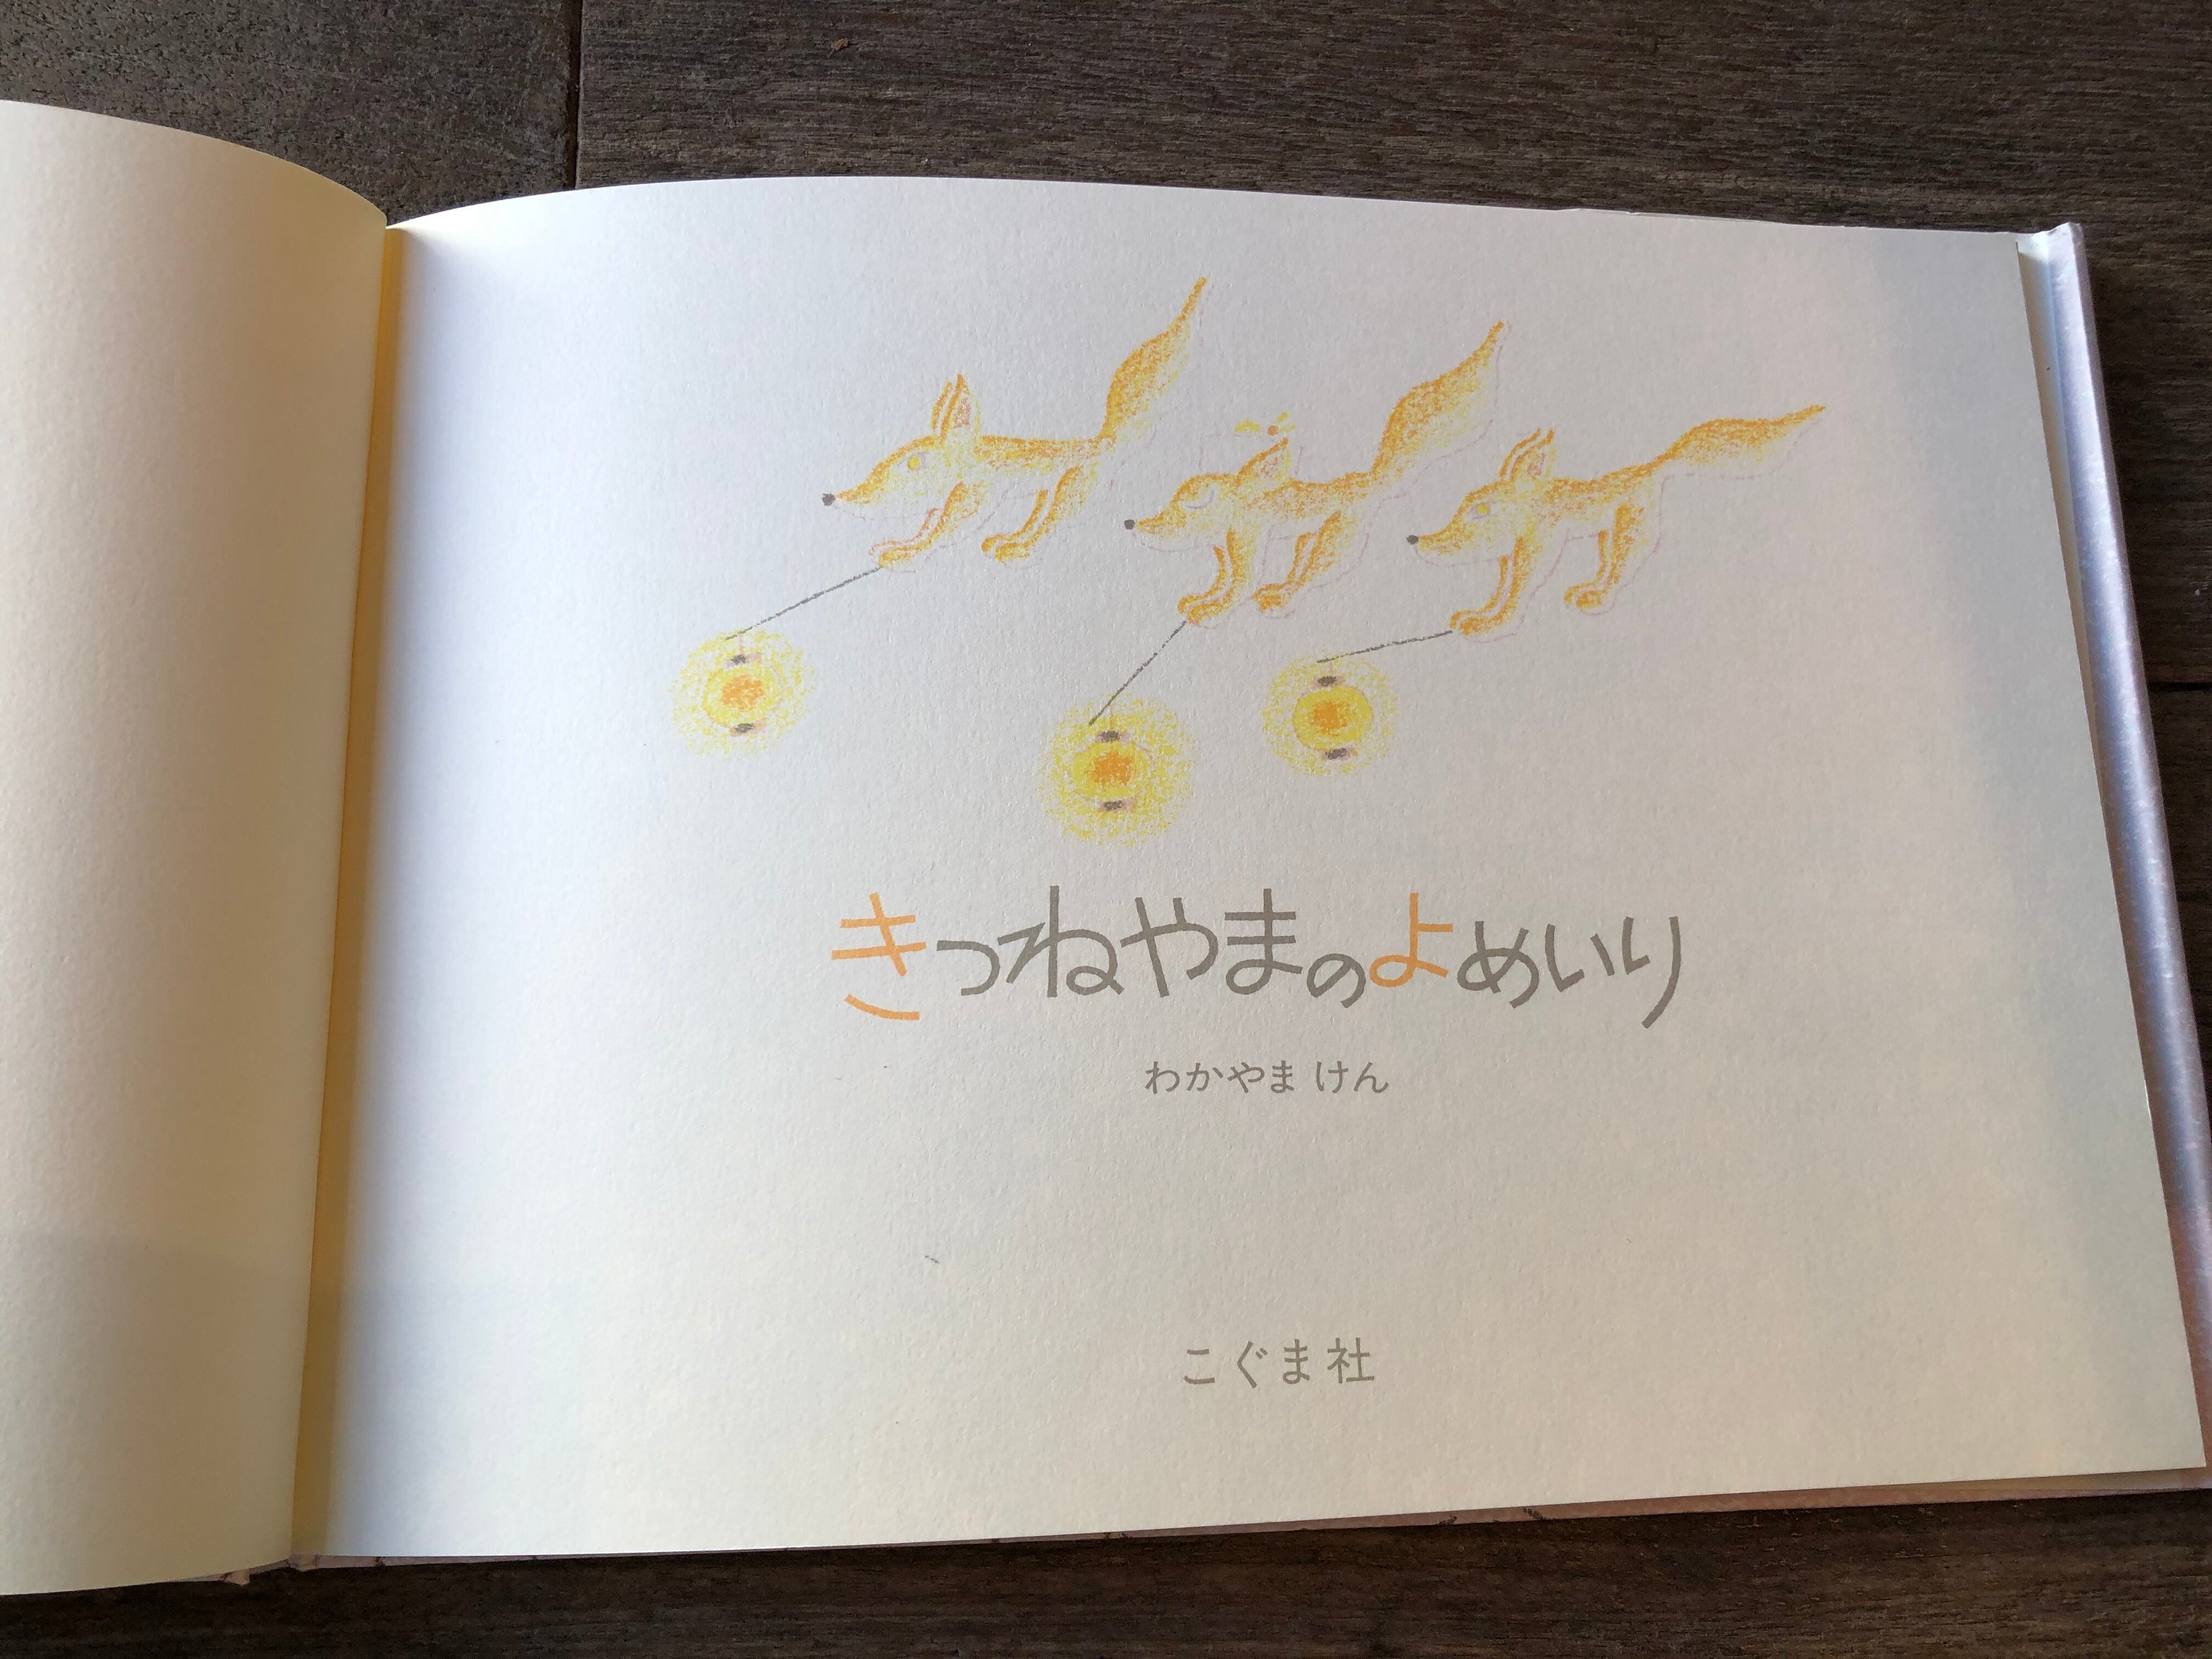 きつねやまのよめいり
わかやま けん
こぐま社